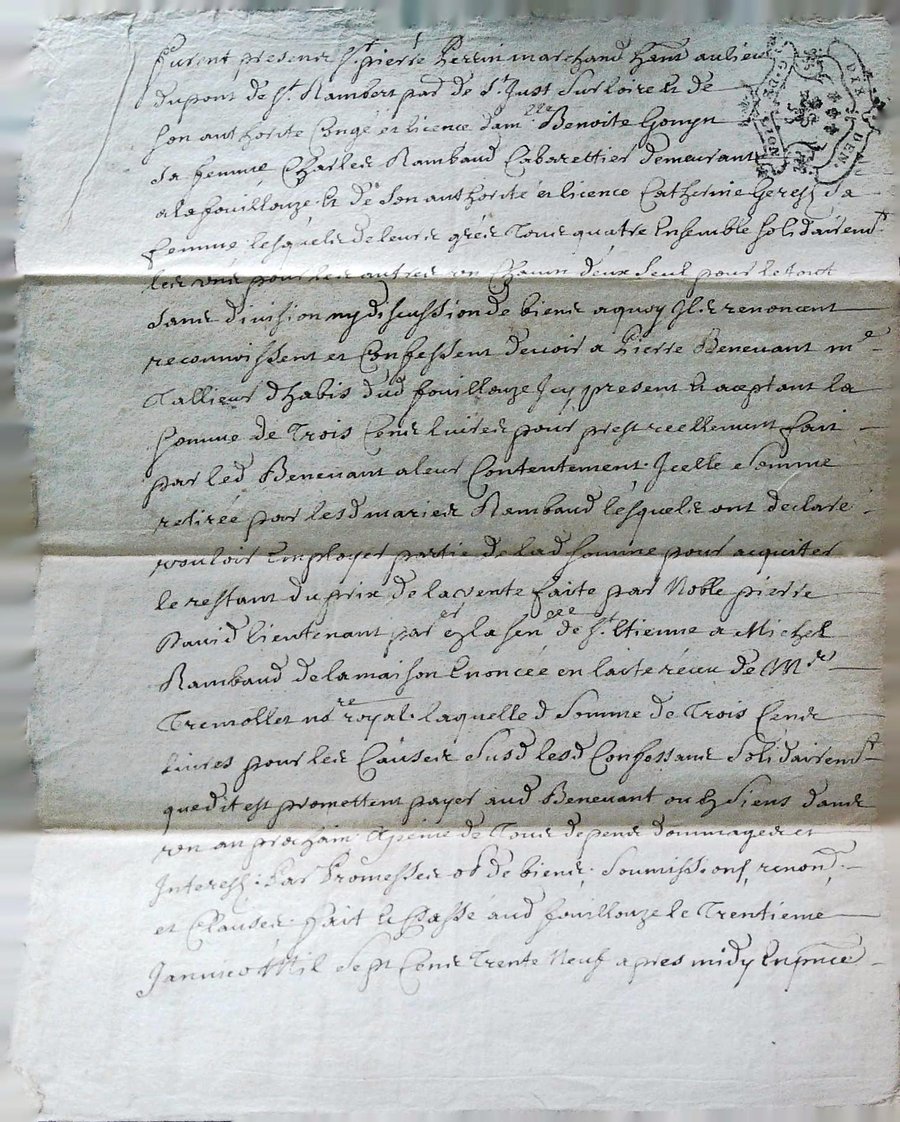 furent presens Sr. pierre perrin marchand hant au lieu
du pont de St. Rambert par de St. Just Sur loire & de
Son authorité Congé et licence dam.lle Benoite Gonyn
Sa femme Charles Rambaud Cabarettier demeurant
a la fouillouze & de Son authorité et licence Catherine Sa
femme lesquels de leurs grés Tous quatre Ensemble Solidairemt
les uns pour les autres un Chacun deux Seul pour le tout
Sans division ny discussion de biens a quoy Ils renoncent
reconnoissent et Confessent devoir a pierre Benevant me
Tallieur dhabis dud fouillouze Icy present & aceptant la
Somme de Trois Cens livres pour prest reellement fait
par led Benevant a leur Contentement Icelle Somme
retirée par lesd mariés Rambaud lesquels ont declaré
vouloir Employer partie de lad Somme pour acquiter
le restant du prix de la vente faite par Noble pierre
David lieutenant par.er en la Sen.ée de St. Etienne a Michel
Rambaud de la maison Enoncée en lacte réceu de Me
Tremollet nore royal laquelled Somme de Trois Cens
Livres pour les Causes Susd lesd Confessans Solidairemt
que dit est promettent payer aud Benevant ou es Siens dans
un an prochain a peine de Tous depens dommages et
Interests : Par Promesses ob de biens Soumissions, renond.
et Clauses fait & Passé aud fouillouze le Trentieme
Janvier Mil Sept Cens Trente Neuf apres midy En pnce
G. DE
DEN.